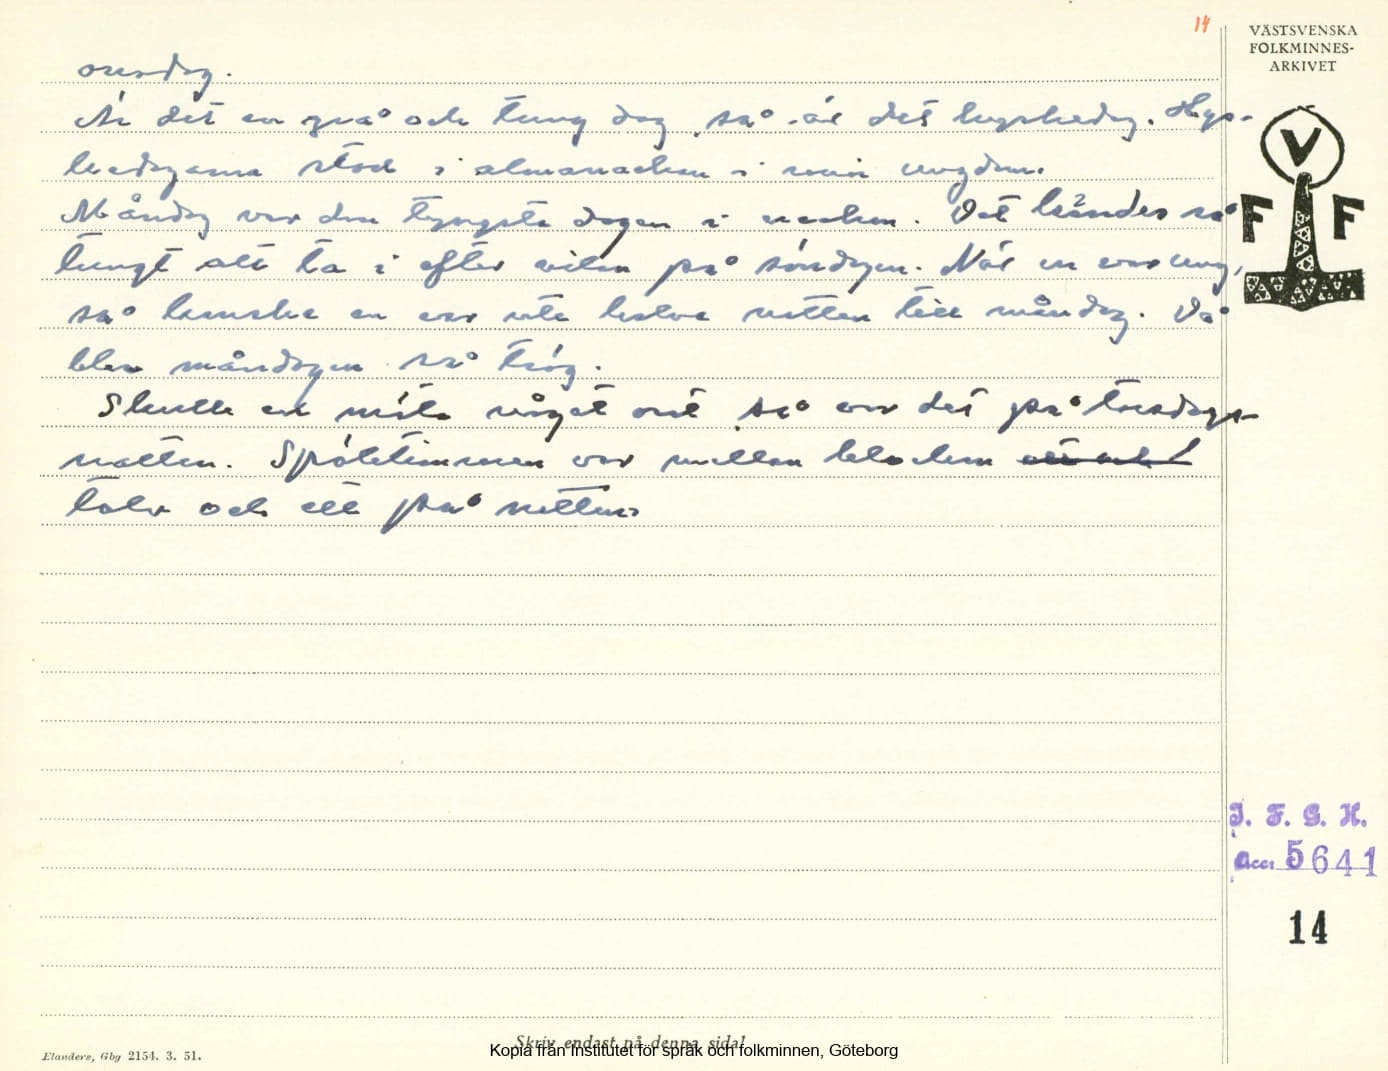 14
VÄSTSVENSKA
FOLKMINNES-
ARKIVET
V
F F
onsdag.
Är det en grå och tung dag, så är det hyskedag. Hys-
kedagarna stod i almanackan i min ungdom.
Måndag var den tyngsta dagen i veckan. Det kändes så
tungt att ta i efter vilan på söndagen. När en var ung,
så kanske en var ute halva natten till måndag. Då
blev måndagen så trög.
Skulle en möta något ont, så var det på torsdags-
natten. Spöktimmen var mellan klockan
tolv och ett på natten.
I. F. G. H.
acc: 5641
14
Skriv endast på denna sida!
Kopia från Institutet för språk och folkminnen, Göteborg
Elanders, Gbg 2154. 3. 51.